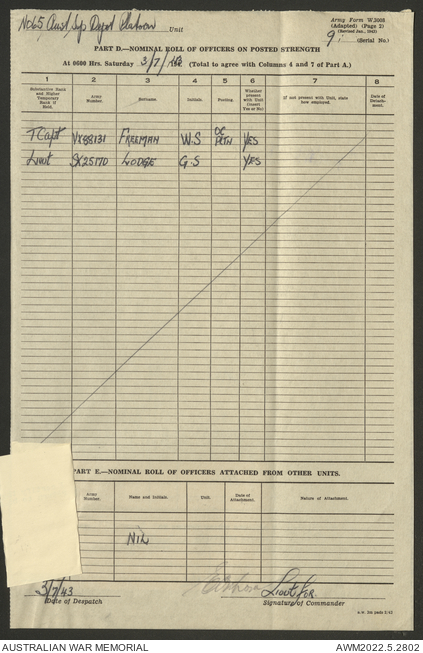 No 65 Aust Sup Depot Platoon Unit
Army Form W.3008
(Adapted) (Page 2)
(Revised Jan., 1943)
9 (Serial No.)
PART D.—NOMINAL ROLL OF OFFICERS ON POSTED STRENGTH
At 0600 Hrs. Saturday 3/7/43 (Total to agree with Columns 4 and 7 of Part A.)
1 2 3 4 5 6 7 8
Substantive Rank and Higher Temporary Rank if Held. Army Number. Surname. Initials. Posting. Whether present with Unit (insert Yes or No) If not present with Unit, state how employed. Date of Detachment.
T/Capt VX88131 FREEMAN W.S OC PLTN YES
Lieut SX25170 LODGE G.S YES
PART E.—NOMINAL ROLL OF OFFICERS ATTACHED FROM OTHER UNITS.
Army Number. Name and Initials. Unit. Date of Attachment. Nature of Attachment.
NIL
3/7/43 Lieut for
Date of Despatch Signature of Commander
AUSTRALIAN WAR MEMORIAL AWM2022.5.2802